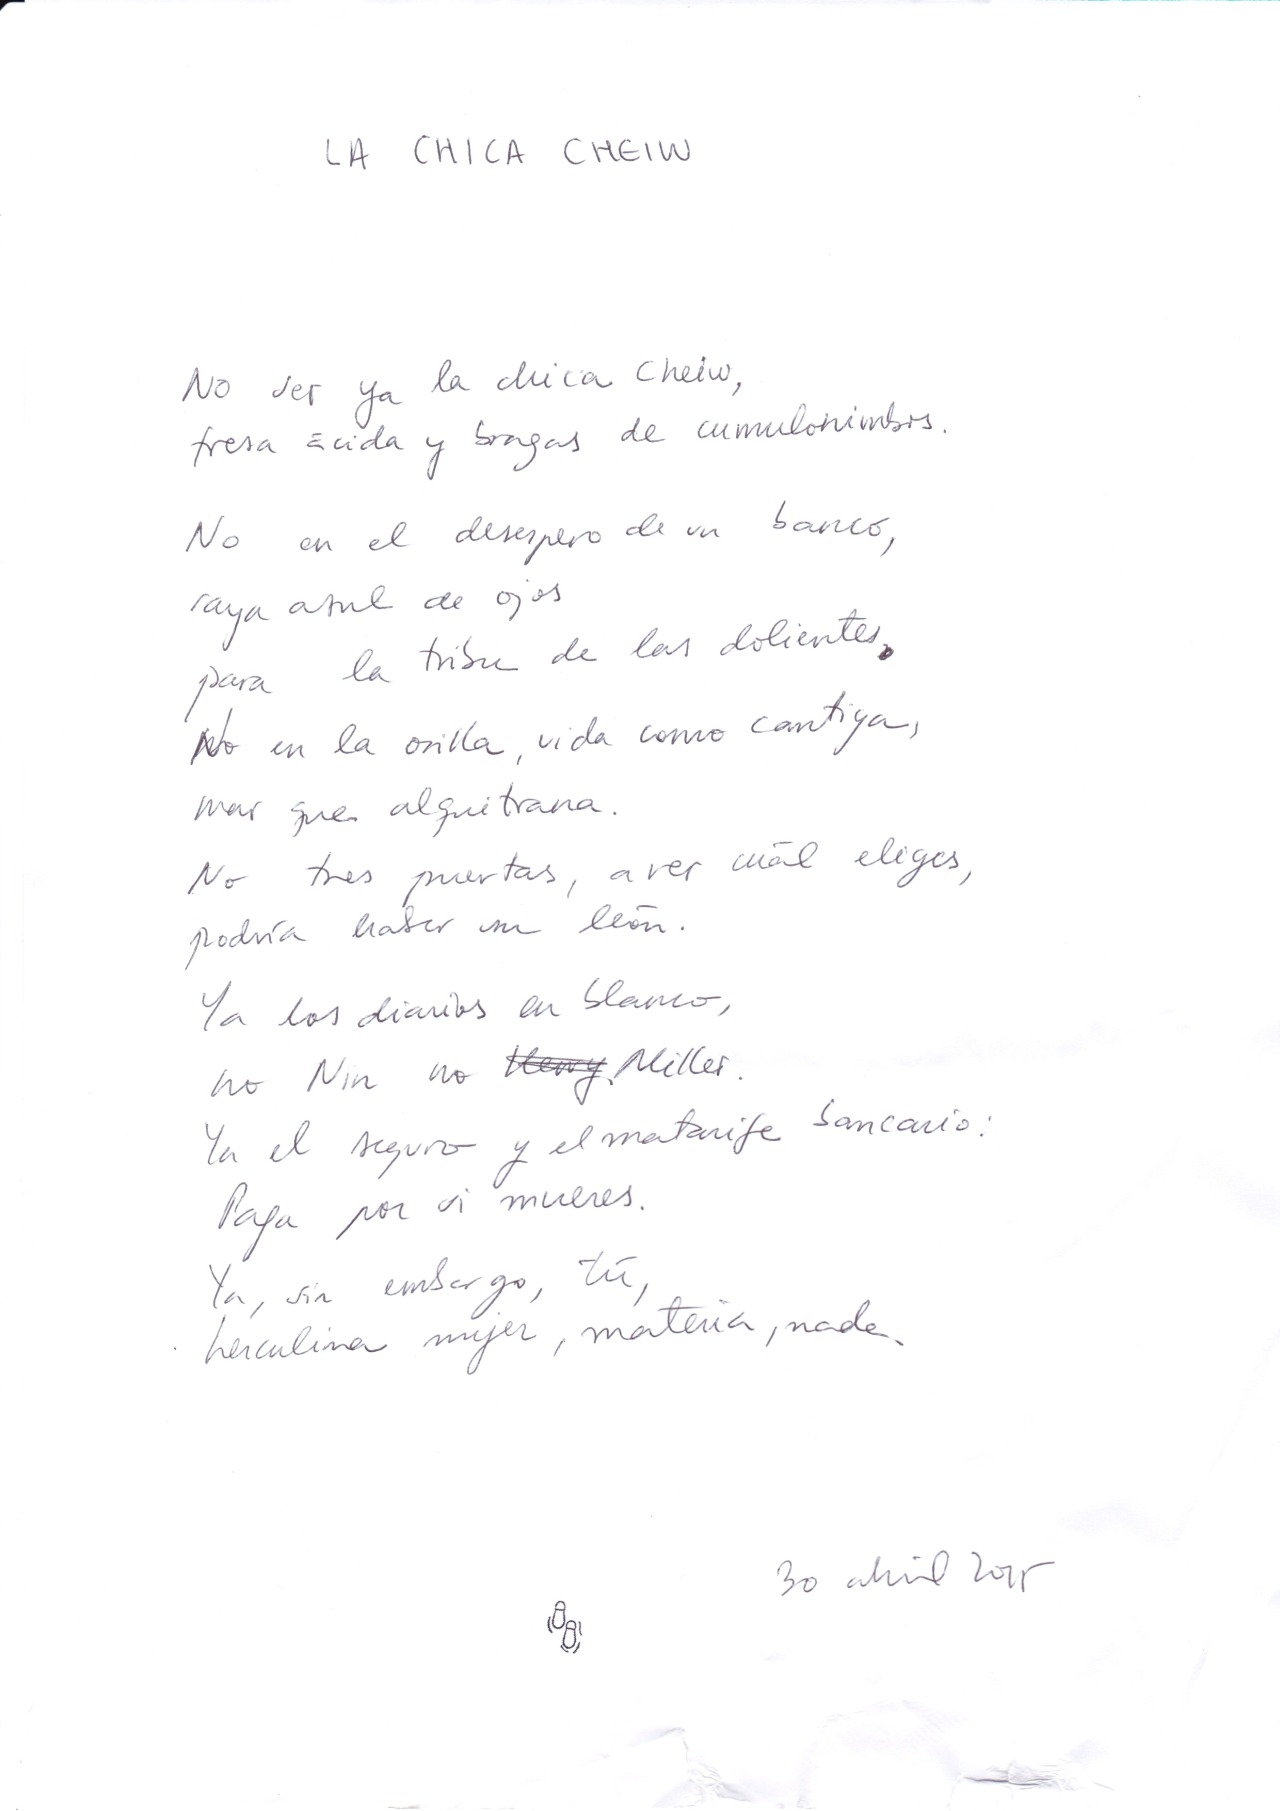 LA CHICA CHEIW
No ser ya la chica Cheiw,
fresa ácida y bragas de cumulonimbos.
No en el desespero de un banco,
raya azul de ojos
para la tribu de las dolientes.
No en la orilla, vida como cantiga,
mar que alquitrana.
No tres puertas, a ver cuál eliges,
podría haber un león.
Ya los diarios en blanco,
no Nin no Henry Miller.
Ya el seguro y el matarife bancario:
Paga por si mueres.
Ya, sin embargo, tú,
herculina mujer, materia, nada.
30 abril 2015